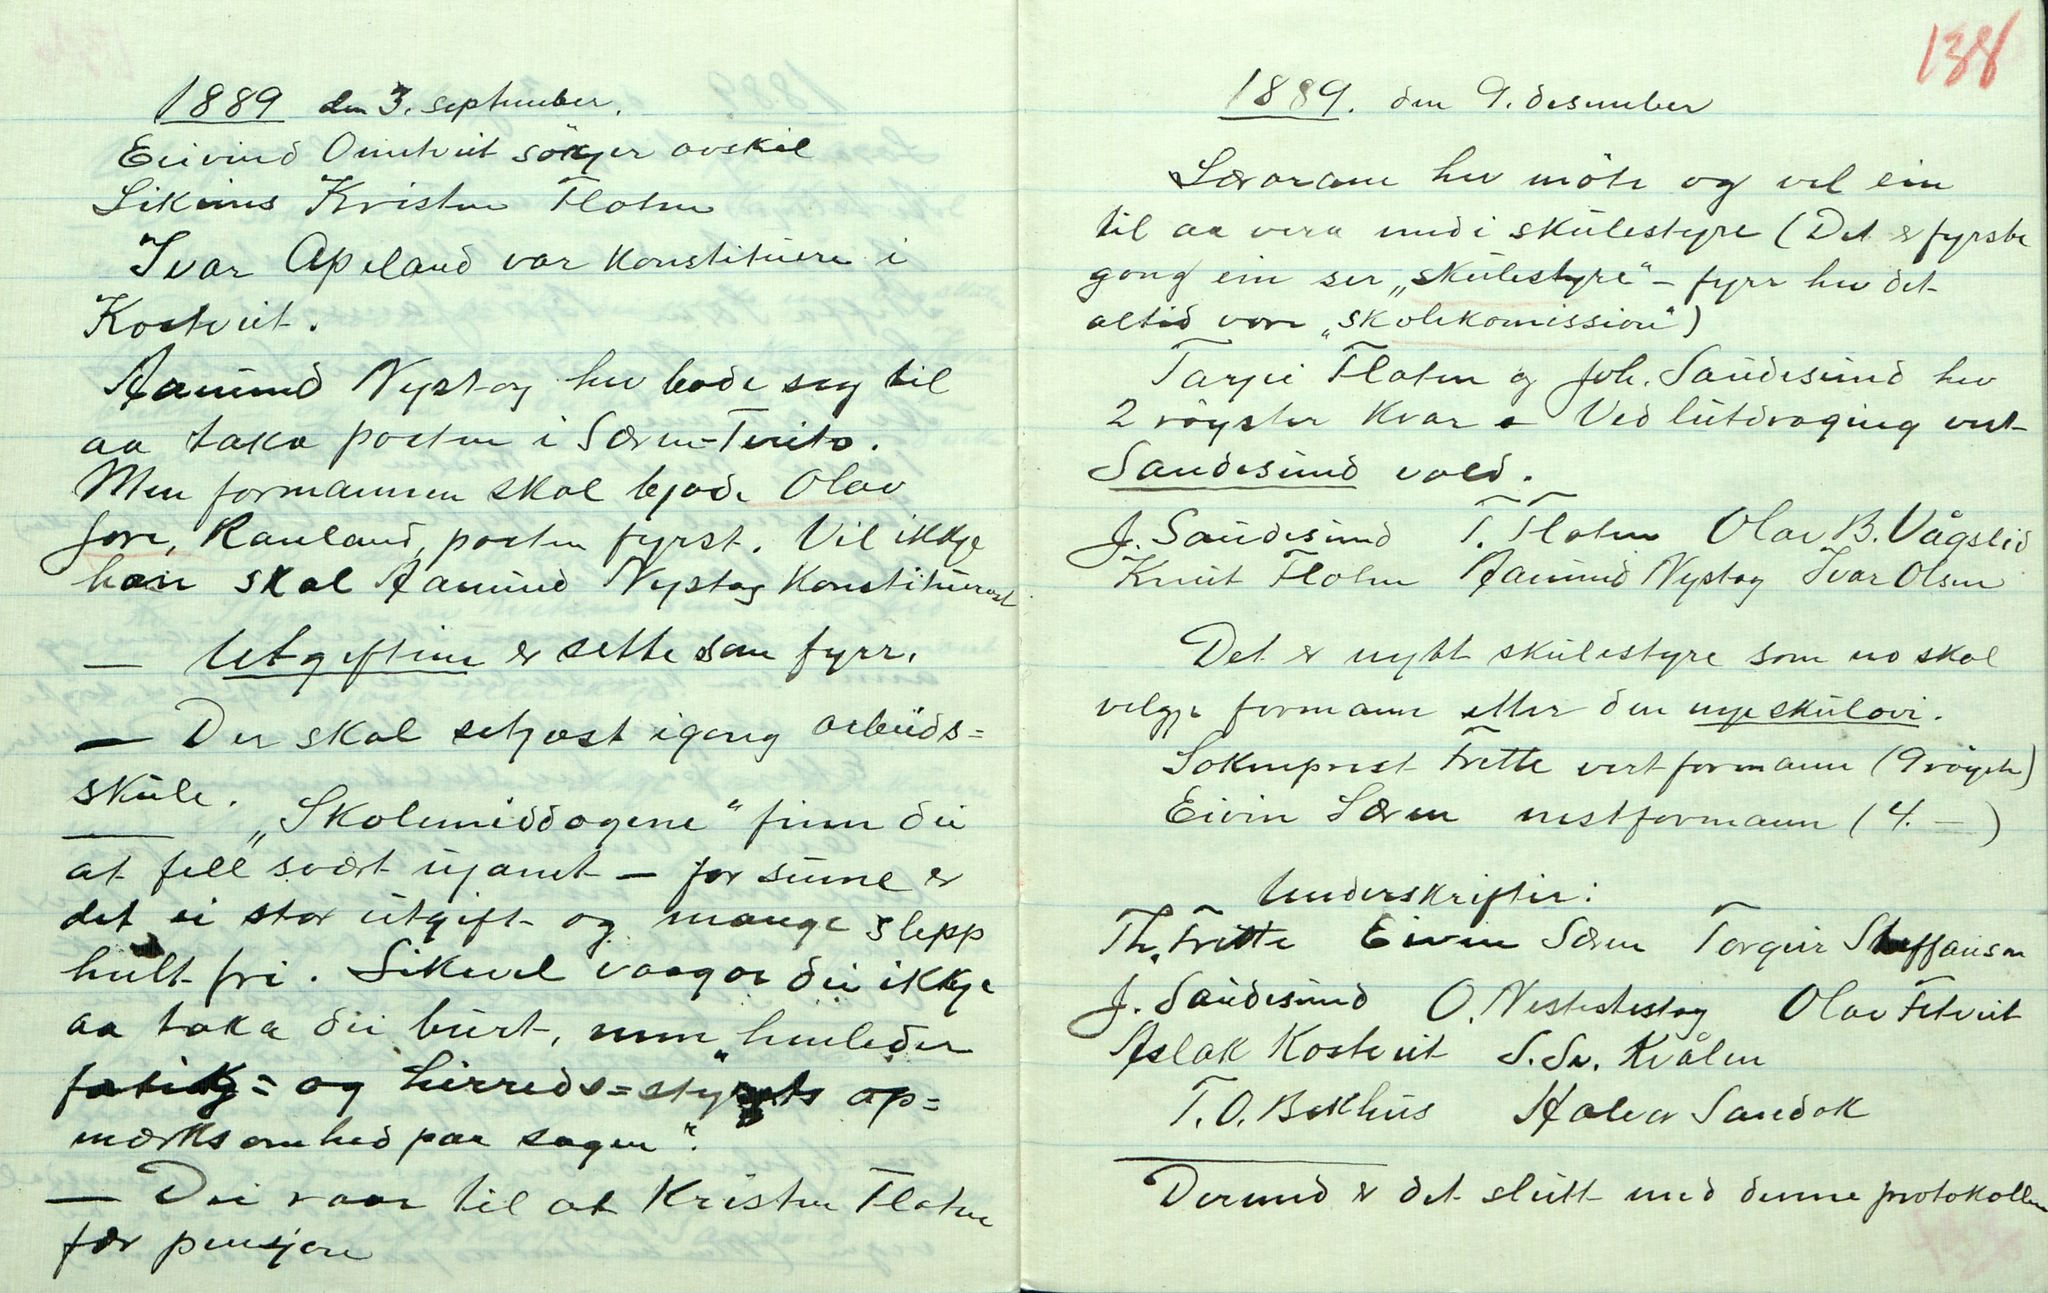 1889 den 3. september.
Eivind Omtveit søkjer avskil
Likeins Kristen Flaten
Ivar Apeland var konstituere i
Kostveit.
Aamund Nystog hev bode seg til
aa taka posten i Særen-Tveito.
Men formannen skal bjode Olav
Jore, Rauland, posten fyrst. Vil ikkje
han skal Aamund Nystog konstituerast
— Utgiftine er sette som fyrr.
— Der skal setjast igang arbeids=
skule.
— „Skolemiddagene" finn dei
at fell svært ujamt — for sume er
det ei stor utgift og mange slepp
heilt fri. Likevel vaagar dei ikkje
aa taka dei burt, men „henleder
fattig= og herreds=styrets op=
mærksomhed paa sagen".
— Dei raar til at Kristen Flaten
fær pensjon
138
1889. den 9. desember
Lærarane hev møte og vel ein
til aa vera med i skulestyre (Det er fyrste
gong ein ser „skulestyre" – fyrr hev det
altid vore „skolekomission")
Targei Flaten og Joh. Saudesund hev
2 røyster kvar. Ved lutdraging vert
Sandesund vald.
J. Sandesund T. Flaten Olav B. Vågslid
Knut Flaten Aamund Nystog Ivar Olsen
Det er nytt skulestyre som no skal
velgje formann etter den nye skulovi.
Sokneprest Frette vert formann (9 røyster)
Eivin Særen nestformann (4. —)
Underskrifter:
Th. Frette Eivin Særen Torgeir Steffanson
J. Sandesund O. Nestestog Olav Fetveit
Aslak Kostveit S. Sv. Kvålen
T. O. Bakhus Halvor Sandok
Dermed er det slutt med denne protokollen